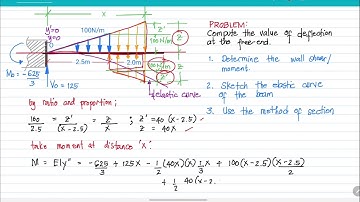 PROBLEM:
Compute the value of deflection
at the free-end.
1. Determine the wall shear/
moment.
2. Sketch the elastic curve
of the beam
3. Use the method of section
y'=0
y=0
100N/m
x
z'
z
100N/m
2.5m
2.0m
Mo = -625
3
Vo = 125
elastic curve
by ratio and proportion;
100/2.5 = z'/(x-2.5) = z/x ; z' = 40(x-2.5)
z = 40x
take moment at distance 'x':
M = EIy" = -625/3 + 125x - 1/2(40x)(x)1/3x + 100(x-2.5)(x-2.5)/2
+ 1/2 40(x-2.